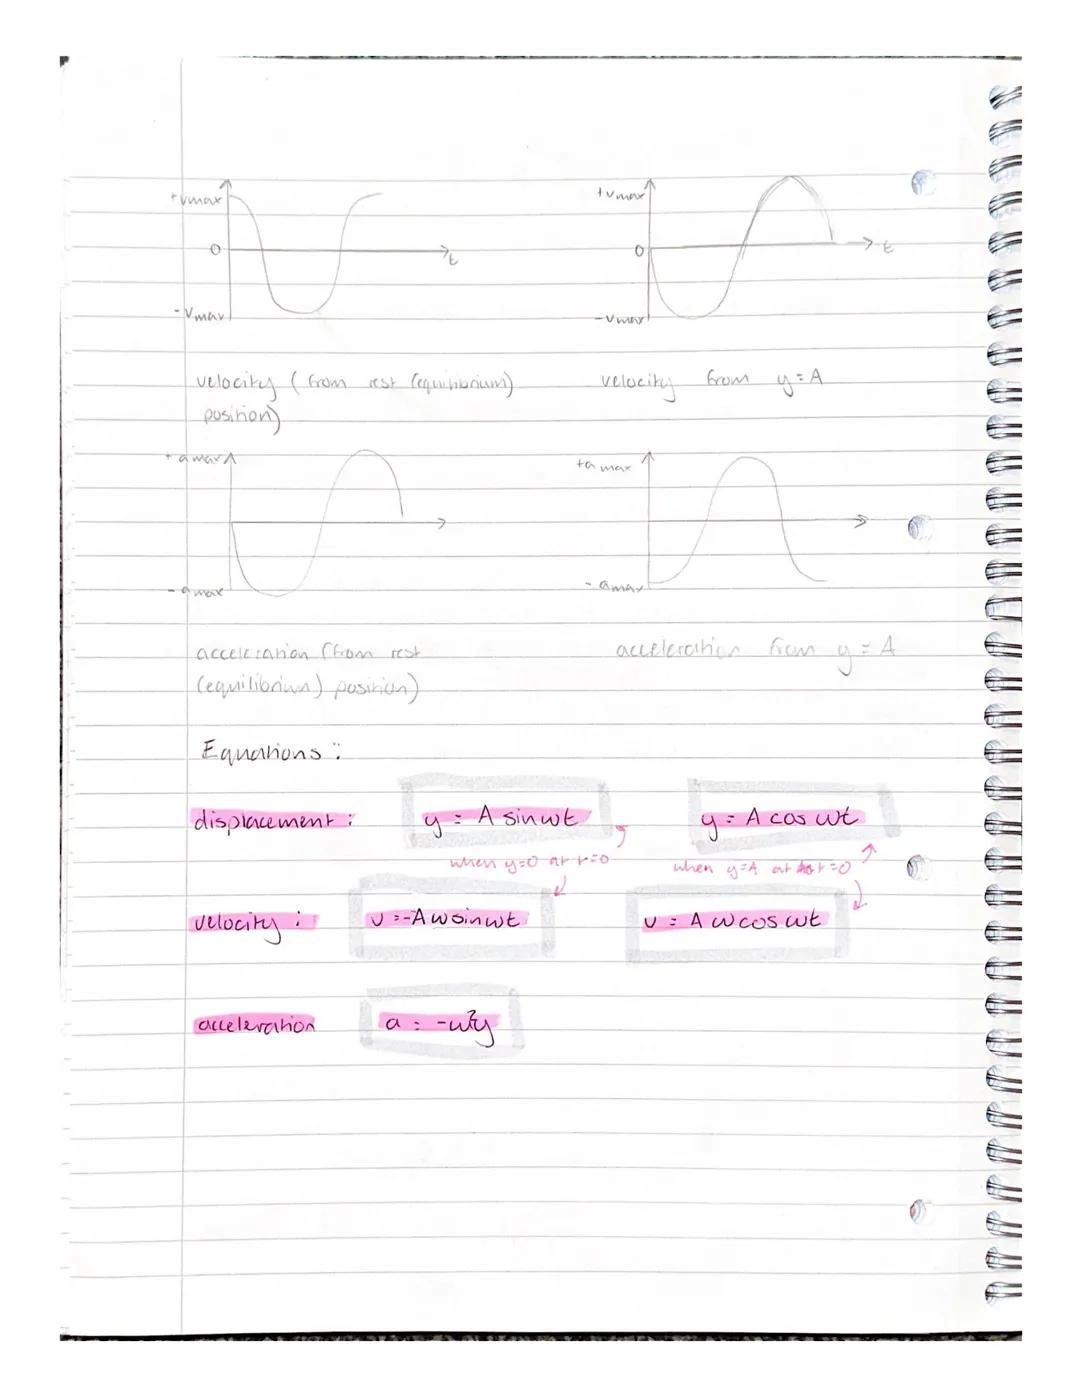 +vmax
+vmax
0
t
0
t
-vmax
-vmax
velocity (from rest (equilibrium)
position)
velocity from y=A
+amax
+a max
-amax
-amax
acceleration (from rest
(equilibrium) position)
acceleration from y = A
Equations:
displacement: y = A sinωt y = A cos ωt
when y=0 at t=0 when y=A at t=0
velocity: v =-Aωsinωt v = A ωcos ωt
acceleration a = -ω²y